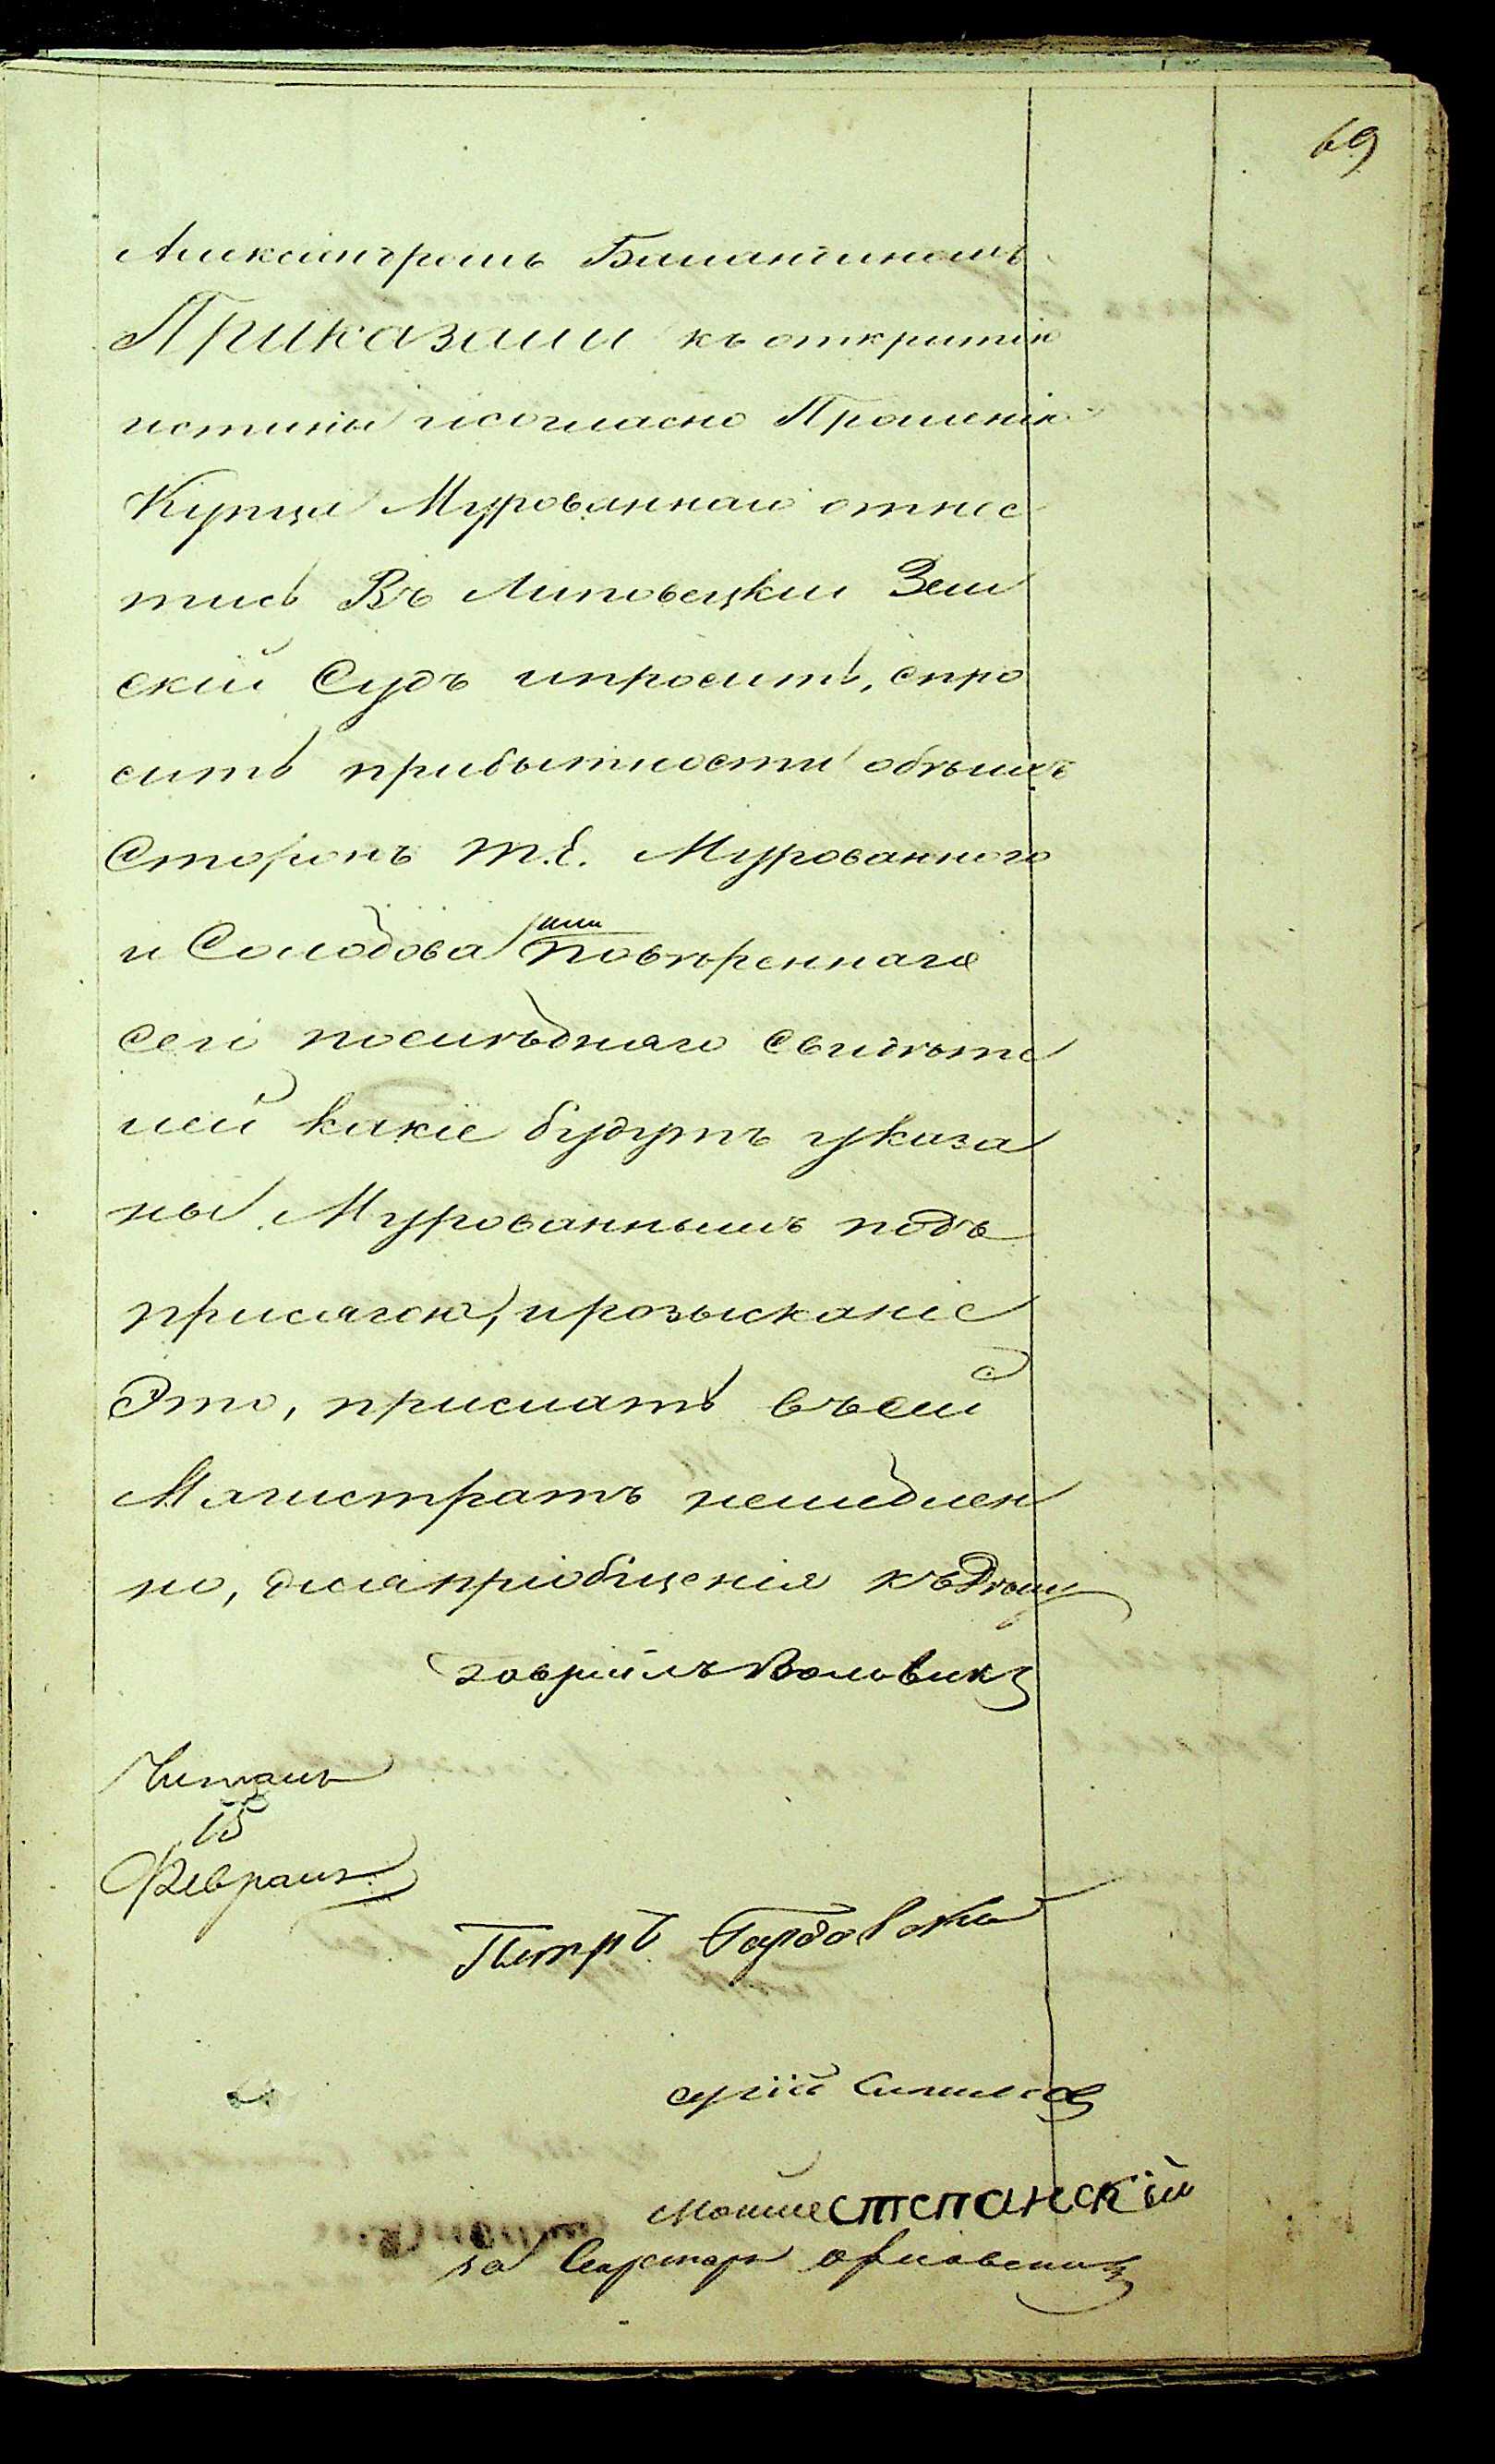 69
Александромъ Баландинымъ
Приказали къ открытію
истины исогласно Прошенію
Купца Мурованнаго отнес
тись Въ Липовецкій Зем
скій Судъ ипросить, спро
сить прибытности обѣихъ
Сторонъ т.е. Мурованного
и Солодова или повѣреннаго
сего послѣдняго свидѣте
лей какіе будутъ указа
ны Мурованнымъ подъ
присягою, ирозысканіе
Это, прислать въсей
Магистратъ немедлен
но, дляпріобщенія къДѣлу
гавріилъ Воловик
Читалъ
15
Февраля
Петръ
Мошке степанскій
за Секретаря